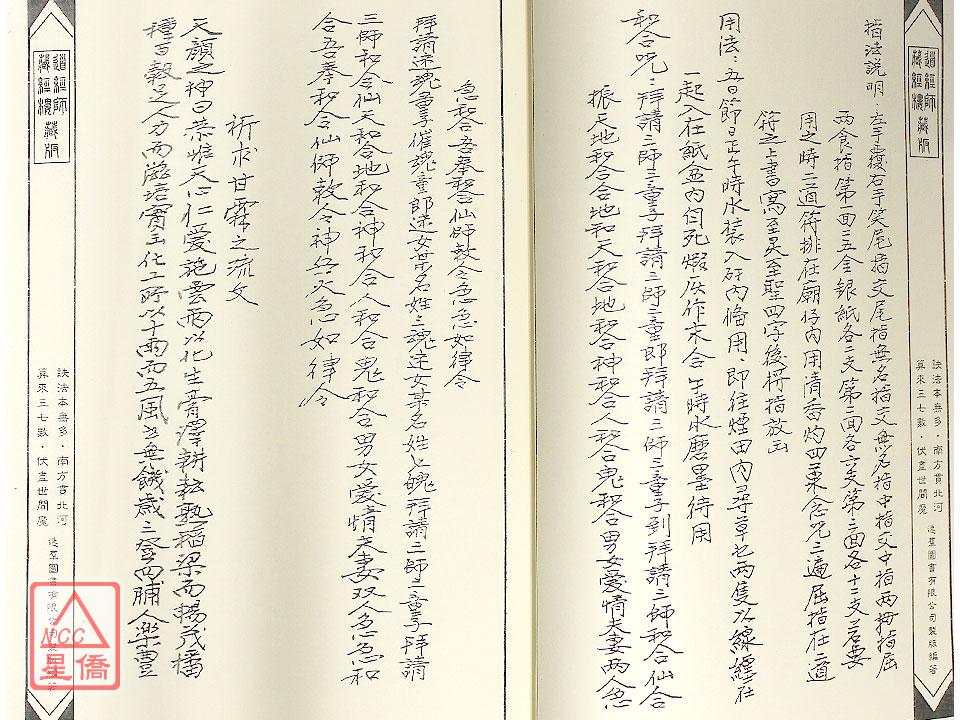 道經師
藏經樓藏版
訣法本無多．南方貫北河
算來三七數．伏盡世間魔
逸群圖書有限公司製版編著
指法說明：左手覆右手笑尾指交尾指無名指交無名指中指交中指兩拇指屈
兩食指第一面三五金銀紙各三支第二面各六支第三面各十二支若要
用之時二道符排在廟仔內用清香灼四粟念咒三遍屈指在二道
符之上書寫至炅至聖四字後將指放出
用法：五日節日正午時水裝入矸內備用：即往煙田內尋草乜兩隻以線纏在
一起入在紙盆內勻死煆灰作末合午時水磨墨待用
和合咒：拜請三師三童子拜請三師三童郎拜請三師三童子到拜請三師和合仙合
振天地和合合地和天和合地和合神和合人和合鬼和合男女愛情夫妻兩人急
急和合吾奉和合仙師敕令急急如律令
拜請迷魂童子催魂童郎迷女某名姓三魂迷女某名姓七魄拜請三師三童子拜請
三師和合仙天和合地和合神和合人和合鬼和合男女愛情夫妻双人急急和
合吾奉和合仙師敕令神兵火急如律令
祈求甘霖之流文
天顏之神曰恭惟天心仁愛施雲雨以化生膏澤耕耘熟稻梁而暢茂播
種百穀足人力而滋培實玉化工所以十雨而五風出無饑歲三登四脯人樂豊
道經師
藏經樓藏版
訣法本無多．南方貫北河
算來三七數．伏盡世間魔
逸群圖書有限公司製版編著
NCC
星僑